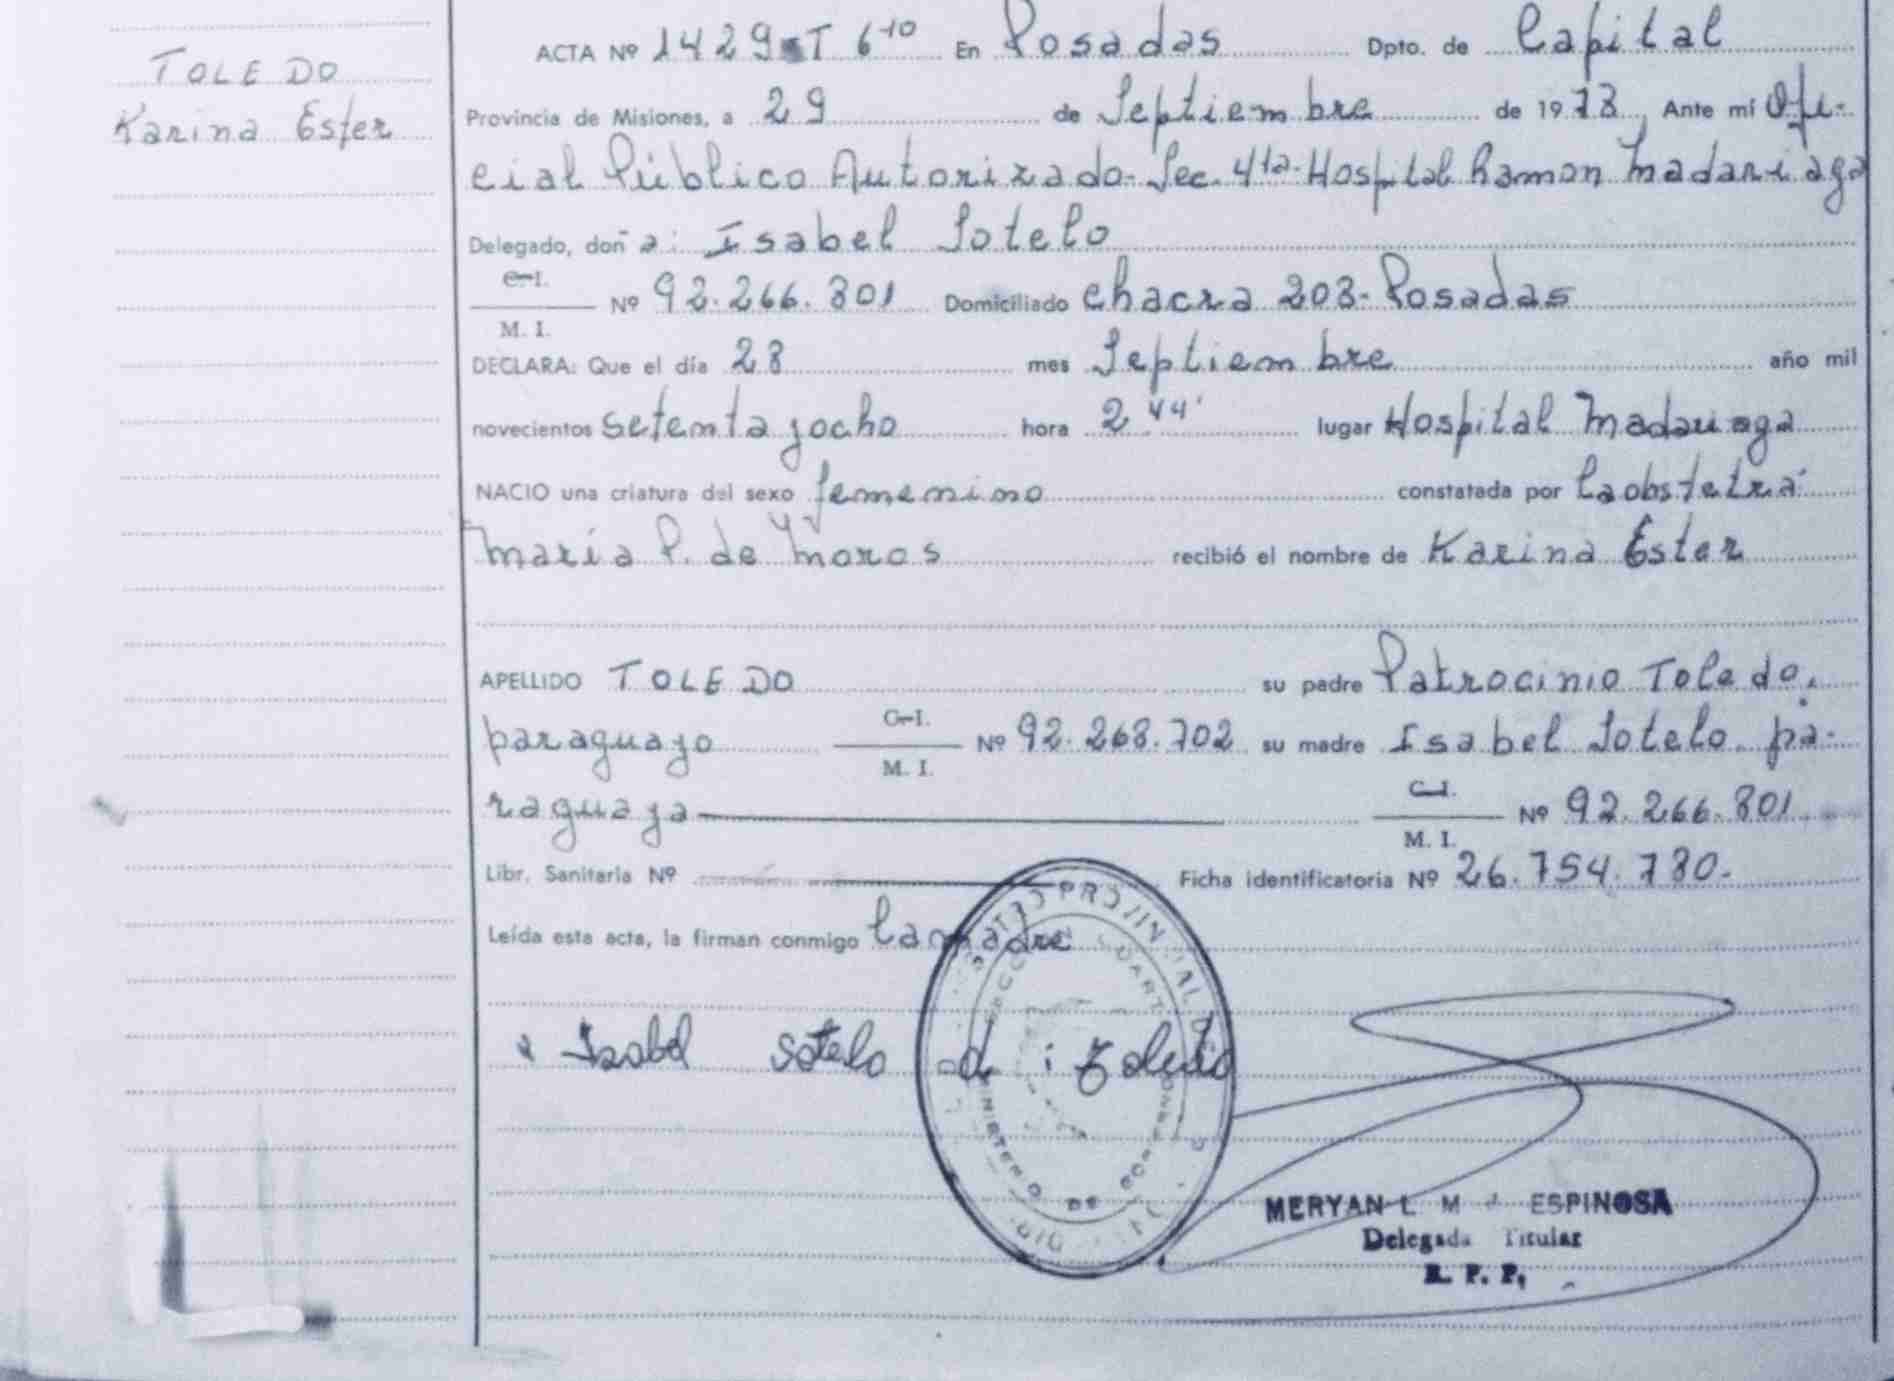 TOLEDO
Karina Ester
ACTA Nº 1429 T 6-10 En Posadas Dpto. de Capital
Provincia de Misiones, a 29 de Septiembre de 1978, Ante mí Ofi-
cial Público Autorizado-Sec. 4ta-Hospital Ramon Madariaga
Delegado, doña: Isabel Sotelo
C.I.
M. I.
Nº 92.266.801 Domiciliado Chacra 203-Posadas
DECLARA: Que el día 28 mes Septiembre año mil
novecientos setenta y ocho hora 2 44' lugar Hospital Madariaga
NACIO una criatura del sexo femenino constatada por la obstetra
María P. de Moros recibió el nombre de Karina Ester
APELLIDO TOLEDO su padre Patrocinio Toledo,
paraguayo C.I. M. I. Nº 92.268.702 su madre Isabel Sotelo, pa-
raguaya C.I. M. I. Nº 92.266.801
Libr. Sanitaria Nº Ficha identificatoria Nº 26.754.780.
Leída esta acta, la firman conmigo la madre
Isabel Sotelo de Toledo
MINISTERIO DE GOBIERNO
MERYAN L. M ESPINOSA
Delegada Titular
R. P. P.